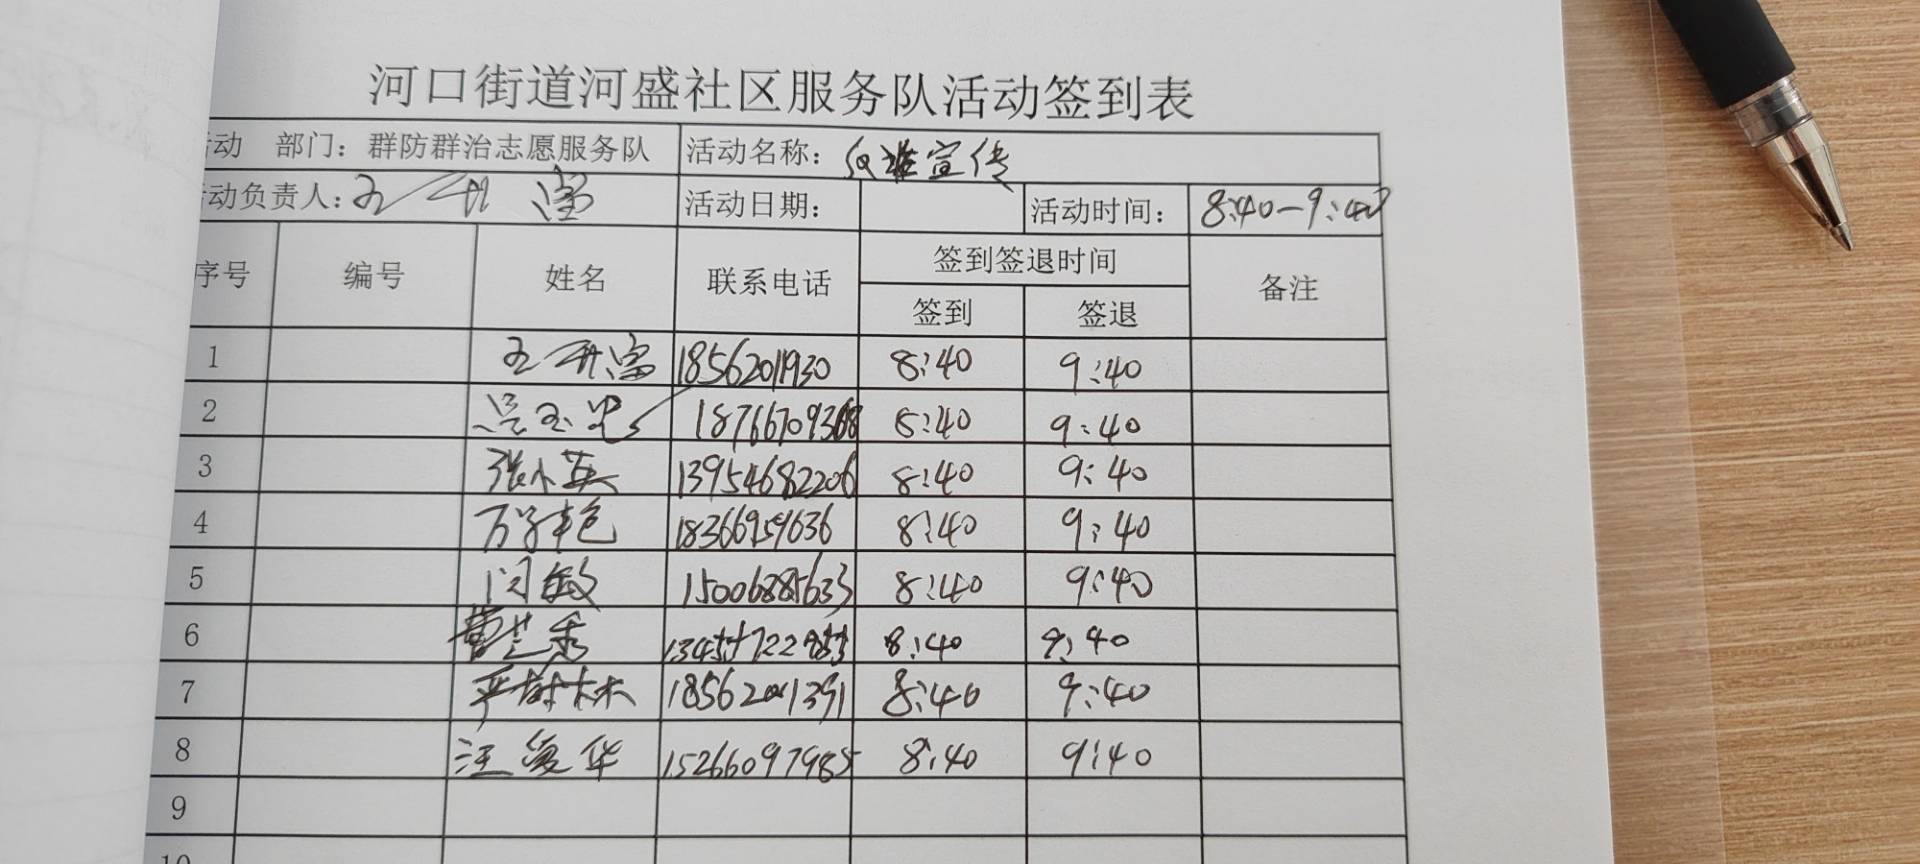 河口街道河盛社区服务队活动签到表
活动 部门：群防群治志愿服务队 活动名称：反诈宣传
活动负责人： 活动日期： 活动时间： 8:40-9:40
序号 编号 姓名 联系电话 签到签退时间 备注
签到 签退
1 18562011930 8:40 9:40
2 8:40 9:40
3 张小英 13954682206 8:40 9:40
4 18366959636 8:40 9:40
5 闫敏 15006885633 8:40 9:40
6 8:40 9:40
7 8:40 9:40
8 汪复华 15266097985 8:40 9:40
9
10